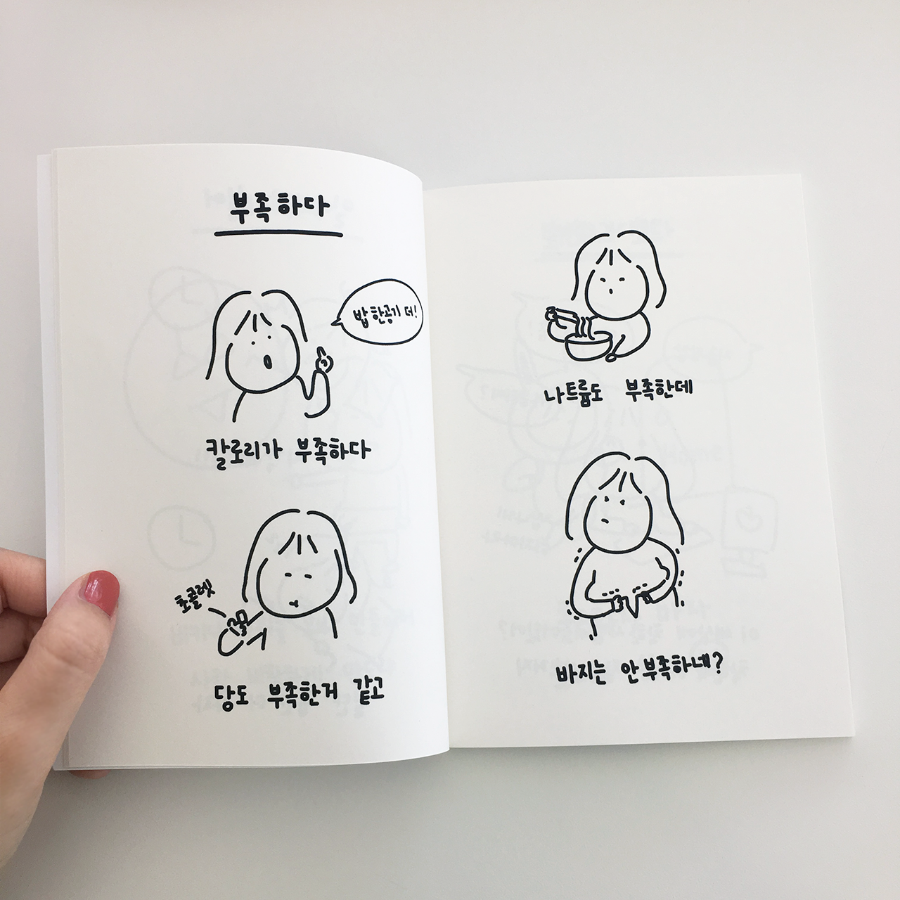 부족하다
밥 한공기 더!
칼로리가 부족하다
초콜렛
당도 부족한거 같고
나트륨도 부족한데
바지는 안부족하네?